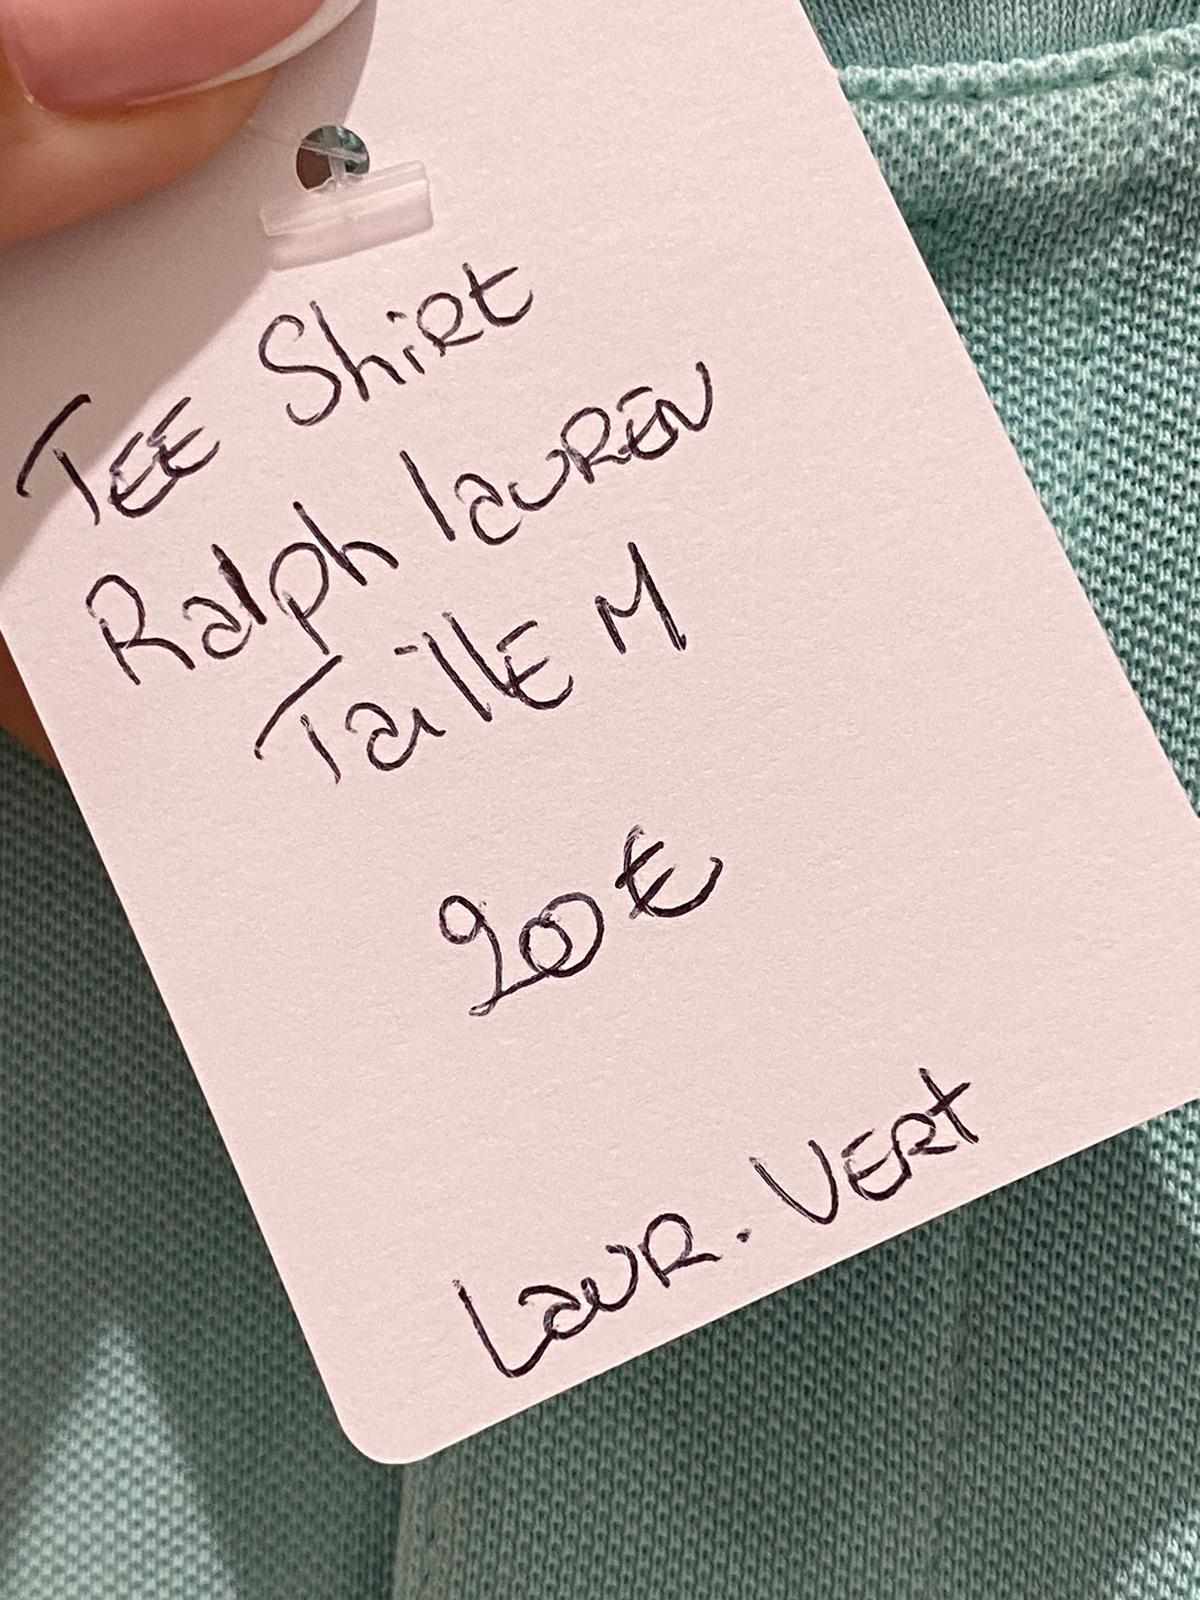 TEE Shirt
Ralph lauren
Taille M
20€
Laur. Vert